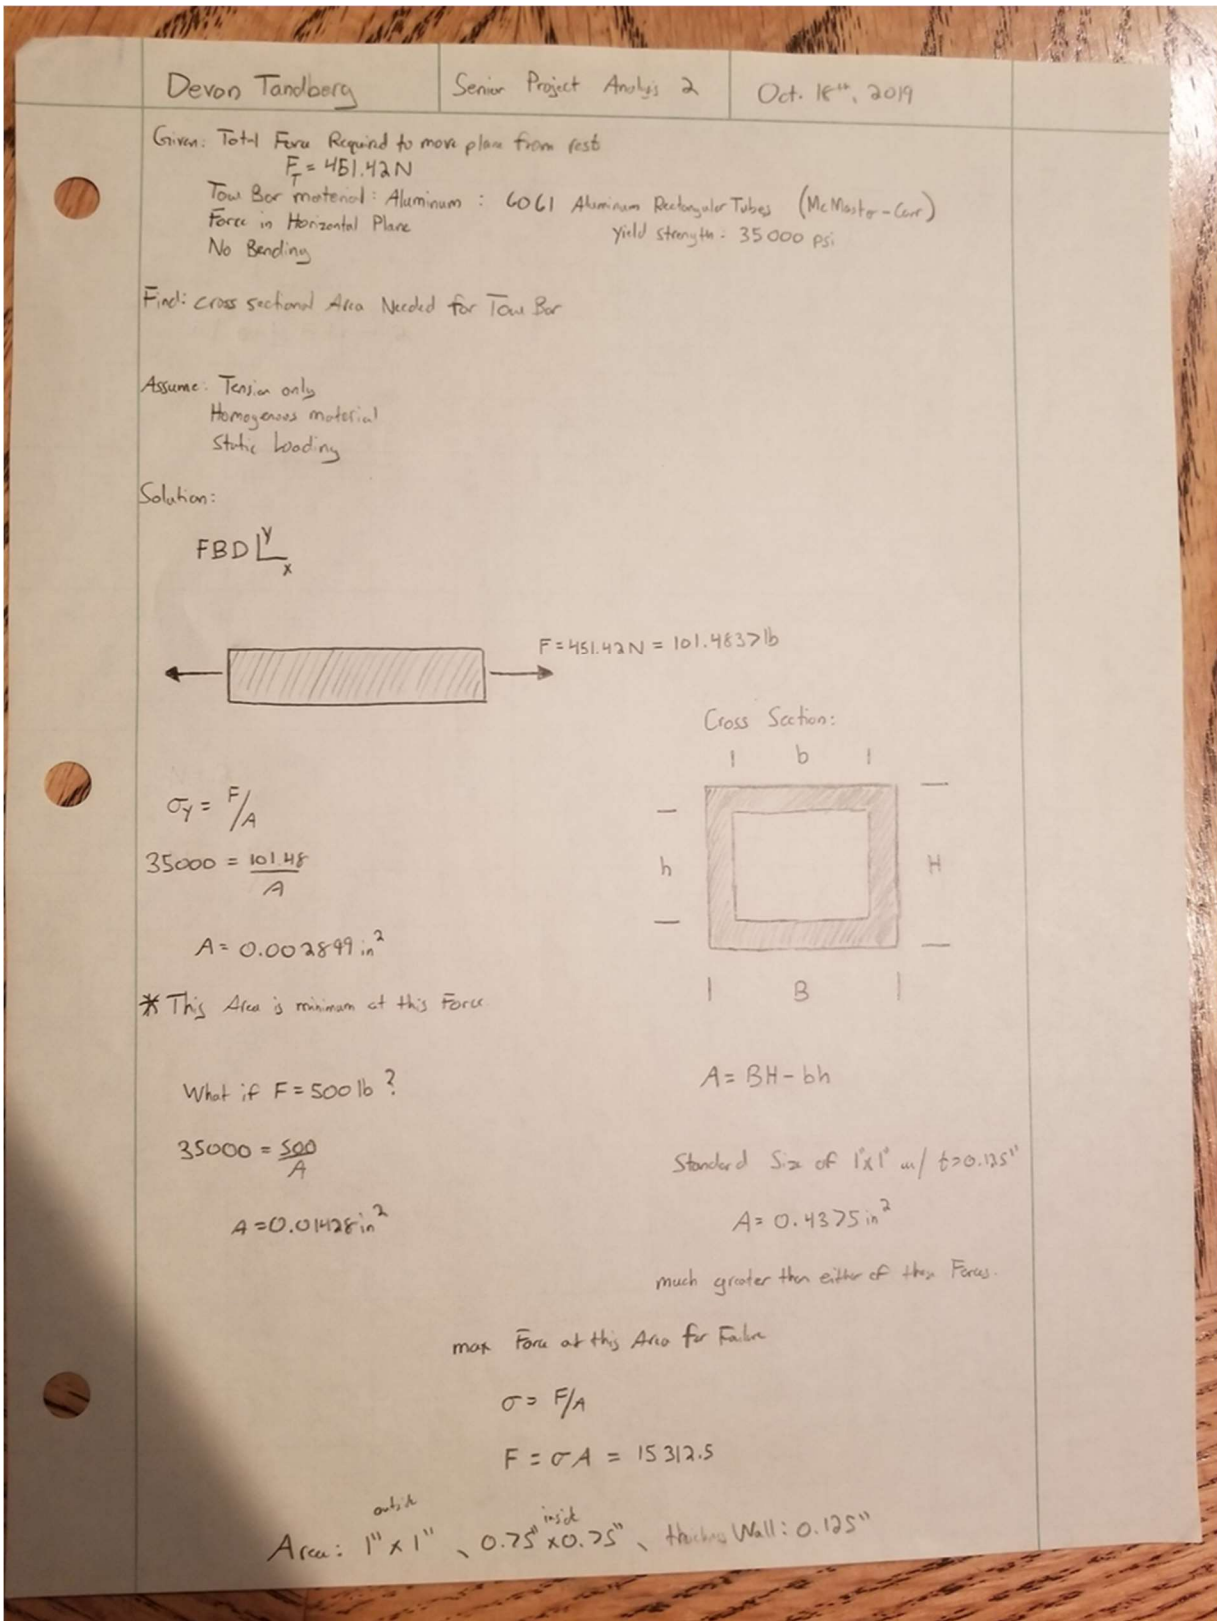 Devon Tandberg
Senior Project Analysis 2
Oct. 18th, 2019
Given: Total Force Required to move plane from rest
F_T = 451.42 N
Tow Bar material: Aluminum : 6061 Aluminum Rectangular Tubes (McMaster-Carr)
Force in Horizontal Plane
yield strength: 35000 psi
No Bending
Find: cross sectional Area Needed for Tow Bar
Assume: Tension only
Homogenous material
Static Loading
Solution:
FBD y
x
F = 451.42 N = 101.4837 lb
Cross Section:
b
σy = F/A
35000 = 101.48/A
h
H
A = 0.002899 in²
B
* This Area is minimum at this Force
A = BH - bh
What if F = 500 lb?
35000 = 500/A
Standard Size of 1"x1" w/ t=0.125"
A = 0.01428 in²
A = 0.4375 in²
much greater than either of these Forces.
max Force at this Area for Failure
σ = F/A
F = σA = 15312.5
outside
inside
Area: 1" x 1", 0.75" x 0.75", Wall: 0.125"